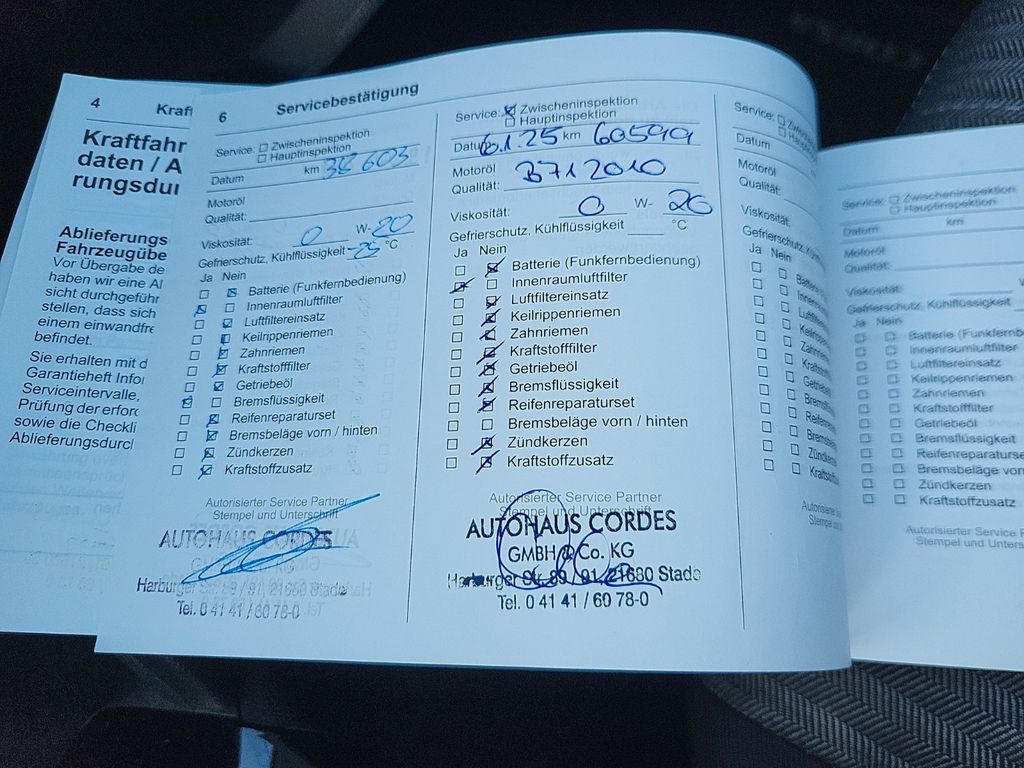 4
Kraft
Kraftfahr
daten / A
rungsdur
Ablieferungs
Fahrzeugübe
Vor Übergabe de
haben wir eine Al
sicht durchgeführ
stellen, dass sich
einem einwandfre
befindet.
Sie erhalten mit d
Garantieheft Infor
Serviceintervalle,
Prüfung der erforc
sowie die Checkli
Ablieferungsdurcl
6
Servicebestätigung
Service: ☐ Zwischeninspektion
☐ Hauptinspektion
Datum km 38 603
Motoröl
Qualität:
Viskosität: 0 W-20
Gefrierschutz, Kühlflüssigkeit -25 °C
Ja Nein
☐ ☒ Batterie (Funkfernbedienung)
☒ ☐ Innenraumluftfilter
☐ ☒ Luftfiltereinsatz
☐ ☒ Keilrippenriemen
☐ ☒ Zahnriemen
☐ ☒ Kraftstofffilter
☐ ☒ Getriebeöl
☒ ☐ Bremsflüssigkeit
☐ ☒ Reifenreparaturset
☐ ☒ Bremsbeläge vorn / hinten
☐ ☒ Zündkerzen
☐ ☒ Kraftstoffzusatz
Autorisierter Service Partner
Stempel und Unterschrift
AUTOHAUS CORDES
Harburger Str. 89 / 91, 21680 Stade
Tel. 0 41 41 / 60 78-0
Service: ☒ Zwischeninspektion
☐ Hauptinspektion
Datum 6.1.25 km 60599
Motoröl
Qualität: B71 2010
Viskosität: 0 W- 20
Gefrierschutz, Kühlflüssigkeit °C
Ja Nein
☐ ☒ Batterie (Funkfernbedienung)
☒ ☐ Innenraumluftfilter
☐ ☒ Luftfiltereinsatz
☐ ☒ Keilrippenriemen
☐ ☒ Zahnriemen
☐ ☒ Kraftstofffilter
☐ ☒ Getriebeöl
☐ ☒ Bremsflüssigkeit
☐ ☒ Reifenreparaturset
☐ ☐ Bremsbeläge vorn / hinten
☐ ☒ Zündkerzen
☐ ☒ Kraftstoffzusatz
Autorisierter Service Partner
Stempel und Unterschrift
AUTOHAUS CORDES
GMBH & Co. KG
Harburger Str. 89 / 91, 21680 Stade
Tel. 0 41 41 / 60 78-0
Service: ☐ Zwi
☐ Haup
Datum
Motoröl
Qualität:
Viskosität:
Gefrierschutz, K
Ja Nein
☐ ☐ Batterie
☐ ☐ Innenra
☐ ☐ Luftfilte
☐ ☐ Keilripp
☐ ☐ Zahnrie
☐ ☐ Kraftsto
☐ ☐ Getriebe
☐ ☐ Bremsfl
☐ ☐ Reifenre
☐ ☐ Bremsbe
☐ ☐ Zündke
☐ ☐ Kraftsto
Autorisier
Stempel
Service: ☐ Zwischeninspektion
☐ Hauptinspektion
Datum km
Motoröl
Qualität:
Viskosität:
Gefrierschutz, Kühlflüssigkeit
Ja Nein
☐ ☐ Batterie (Funkfernb
☐ ☐ Innenraumluftfilter
☐ ☐ Luftfiltereinsatz
☐ ☐ Keilrippenriemen
☐ ☐ Zahnriemen
☐ ☐ Kraftstofffilter
☐ ☐ Getriebeöl
☐ ☐ Bremsflüssigkeit
☐ ☐ Reifenreparaturset
☐ ☐ Bremsbeläge vorn
☐ ☐ Zündkerzen
☐ ☐ Kraftstoffzusatz
Autorisierter Service P
Stempel und Unters